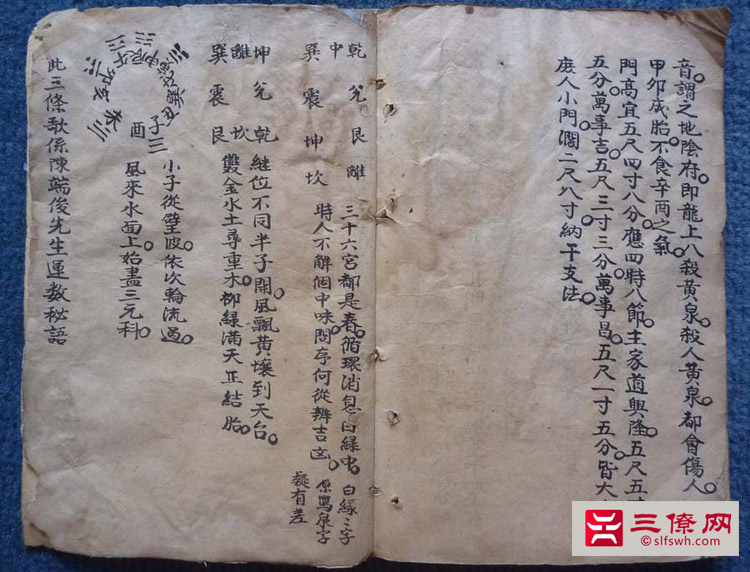 音謂之地陰府即龍上八殺黃泉。殺人黃泉。都會傷人。
甲卯成胎。不食辛酉之氣。
門高宜五尺四寸八分。應四時八節。主家道興隆。五尺五寸
五分萬事吉。五尺三寸三分。萬事昌。五尺一寸五分。皆大
庻人小門。濶二尺八寸。納干支法。
乾 兌 艮 離
中
巽 震 坤 坎
三十六宮都是春。循環消息白緑中。白緑二字
時人不解個中味。問尔何從辨吉凶。原寫泉字
疑有差
坤 兌 乾
離 坎
巽 震 艮
継位不同半子開。風飄黃壤到天台。
雙金水土尋重木。柳緑滿天正結胎。
子
酉
小子從壁波。依次輪流過。
風來水面上。始盡三元科。
此三條歌係陳端俊先生運数秘語
三僚网
©slfswh.com